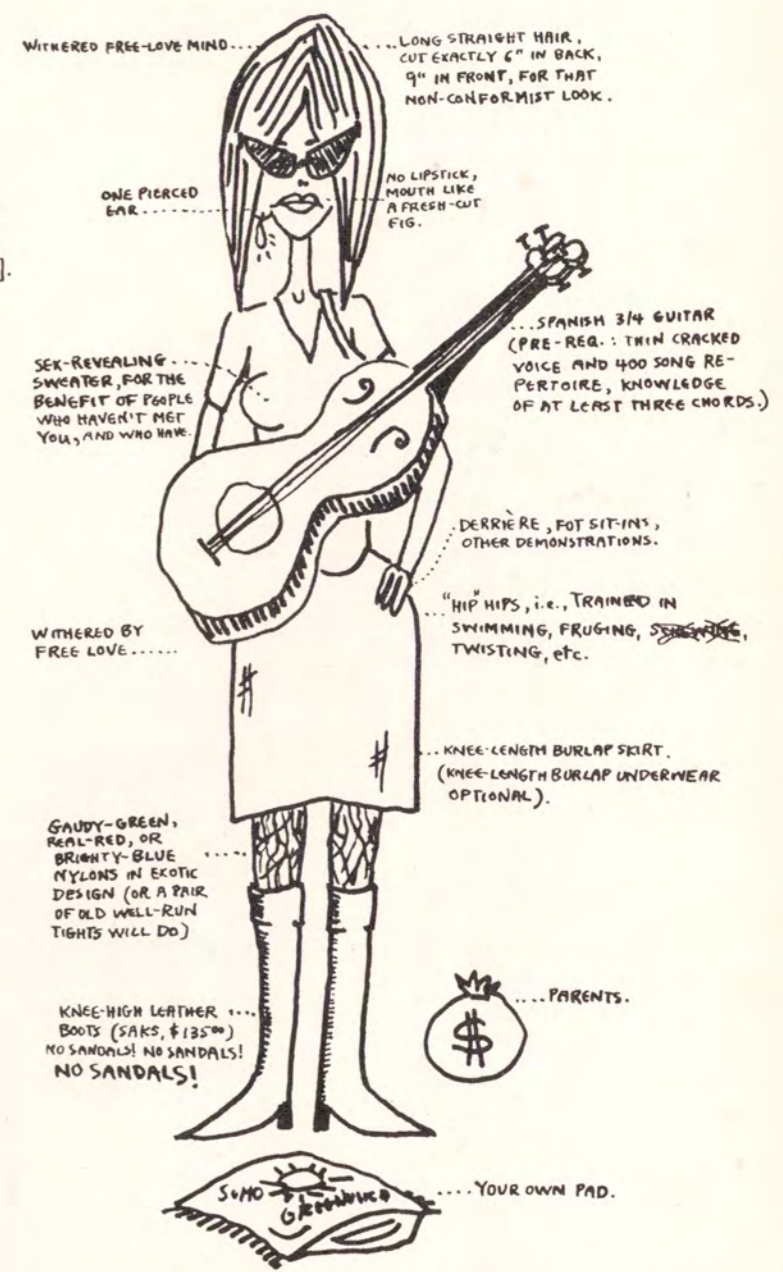 WITHERED FREE-LOVE MIND....
....LONG STRAIGHT HAIR,
CUT EXACTLY 6" IN BACK,
9" IN FRONT, FOR THAT
NON-CONFORMIST LOOK.
ONE PIERCED
EAR........
NO LIPSTICK,
MOUTH LIKE
A FRESH-CUT
FIG.
].
...SPANISH 3/4 GUITAR
(PRE-REQ.: THIN CRACKED
VOICE AND 400 SONG RE-
PERTOIRE, KNOWLEDGE
OF AT LEAST THREE CHORDS.)
SEX-REVEALING....
SWEATER, FOR THE
BENEFIT OF PEOPLE
WHO HAVEN'T MET
YOU, AND WHO HAVE.
DERRIÈRE, FOT SIT-INS,
OTHER DEMONSTRATIONS.
...."HIP" HIPS, i.e., TRAINED IN
SWIMMING, FRUGING, SCREWING,
TWISTING, etc.
WITHERED BY
FREE LOVE......
...KNEE-LENGTH BURLAP SKIRT.
(KNEE-LENGTH BURLAP UNDERWEAR
OPTIONAL).
GAUDY-GREEN,
REAL-RED, OR
BRIGHTY-BLUE ....
NYLONS IN EXOTIC
DESIGN (OR A PAIR
OF OLD WELL-RUN
TIGHTS WILL DO)
KNEE-HIGH LEATHER ....
BOOTS (SAKS, $135⁰⁰)
NO SANDALS! NO SANDALS!
NO SANDALS!
....PARENTS.
$
....YOUR OWN PAD.